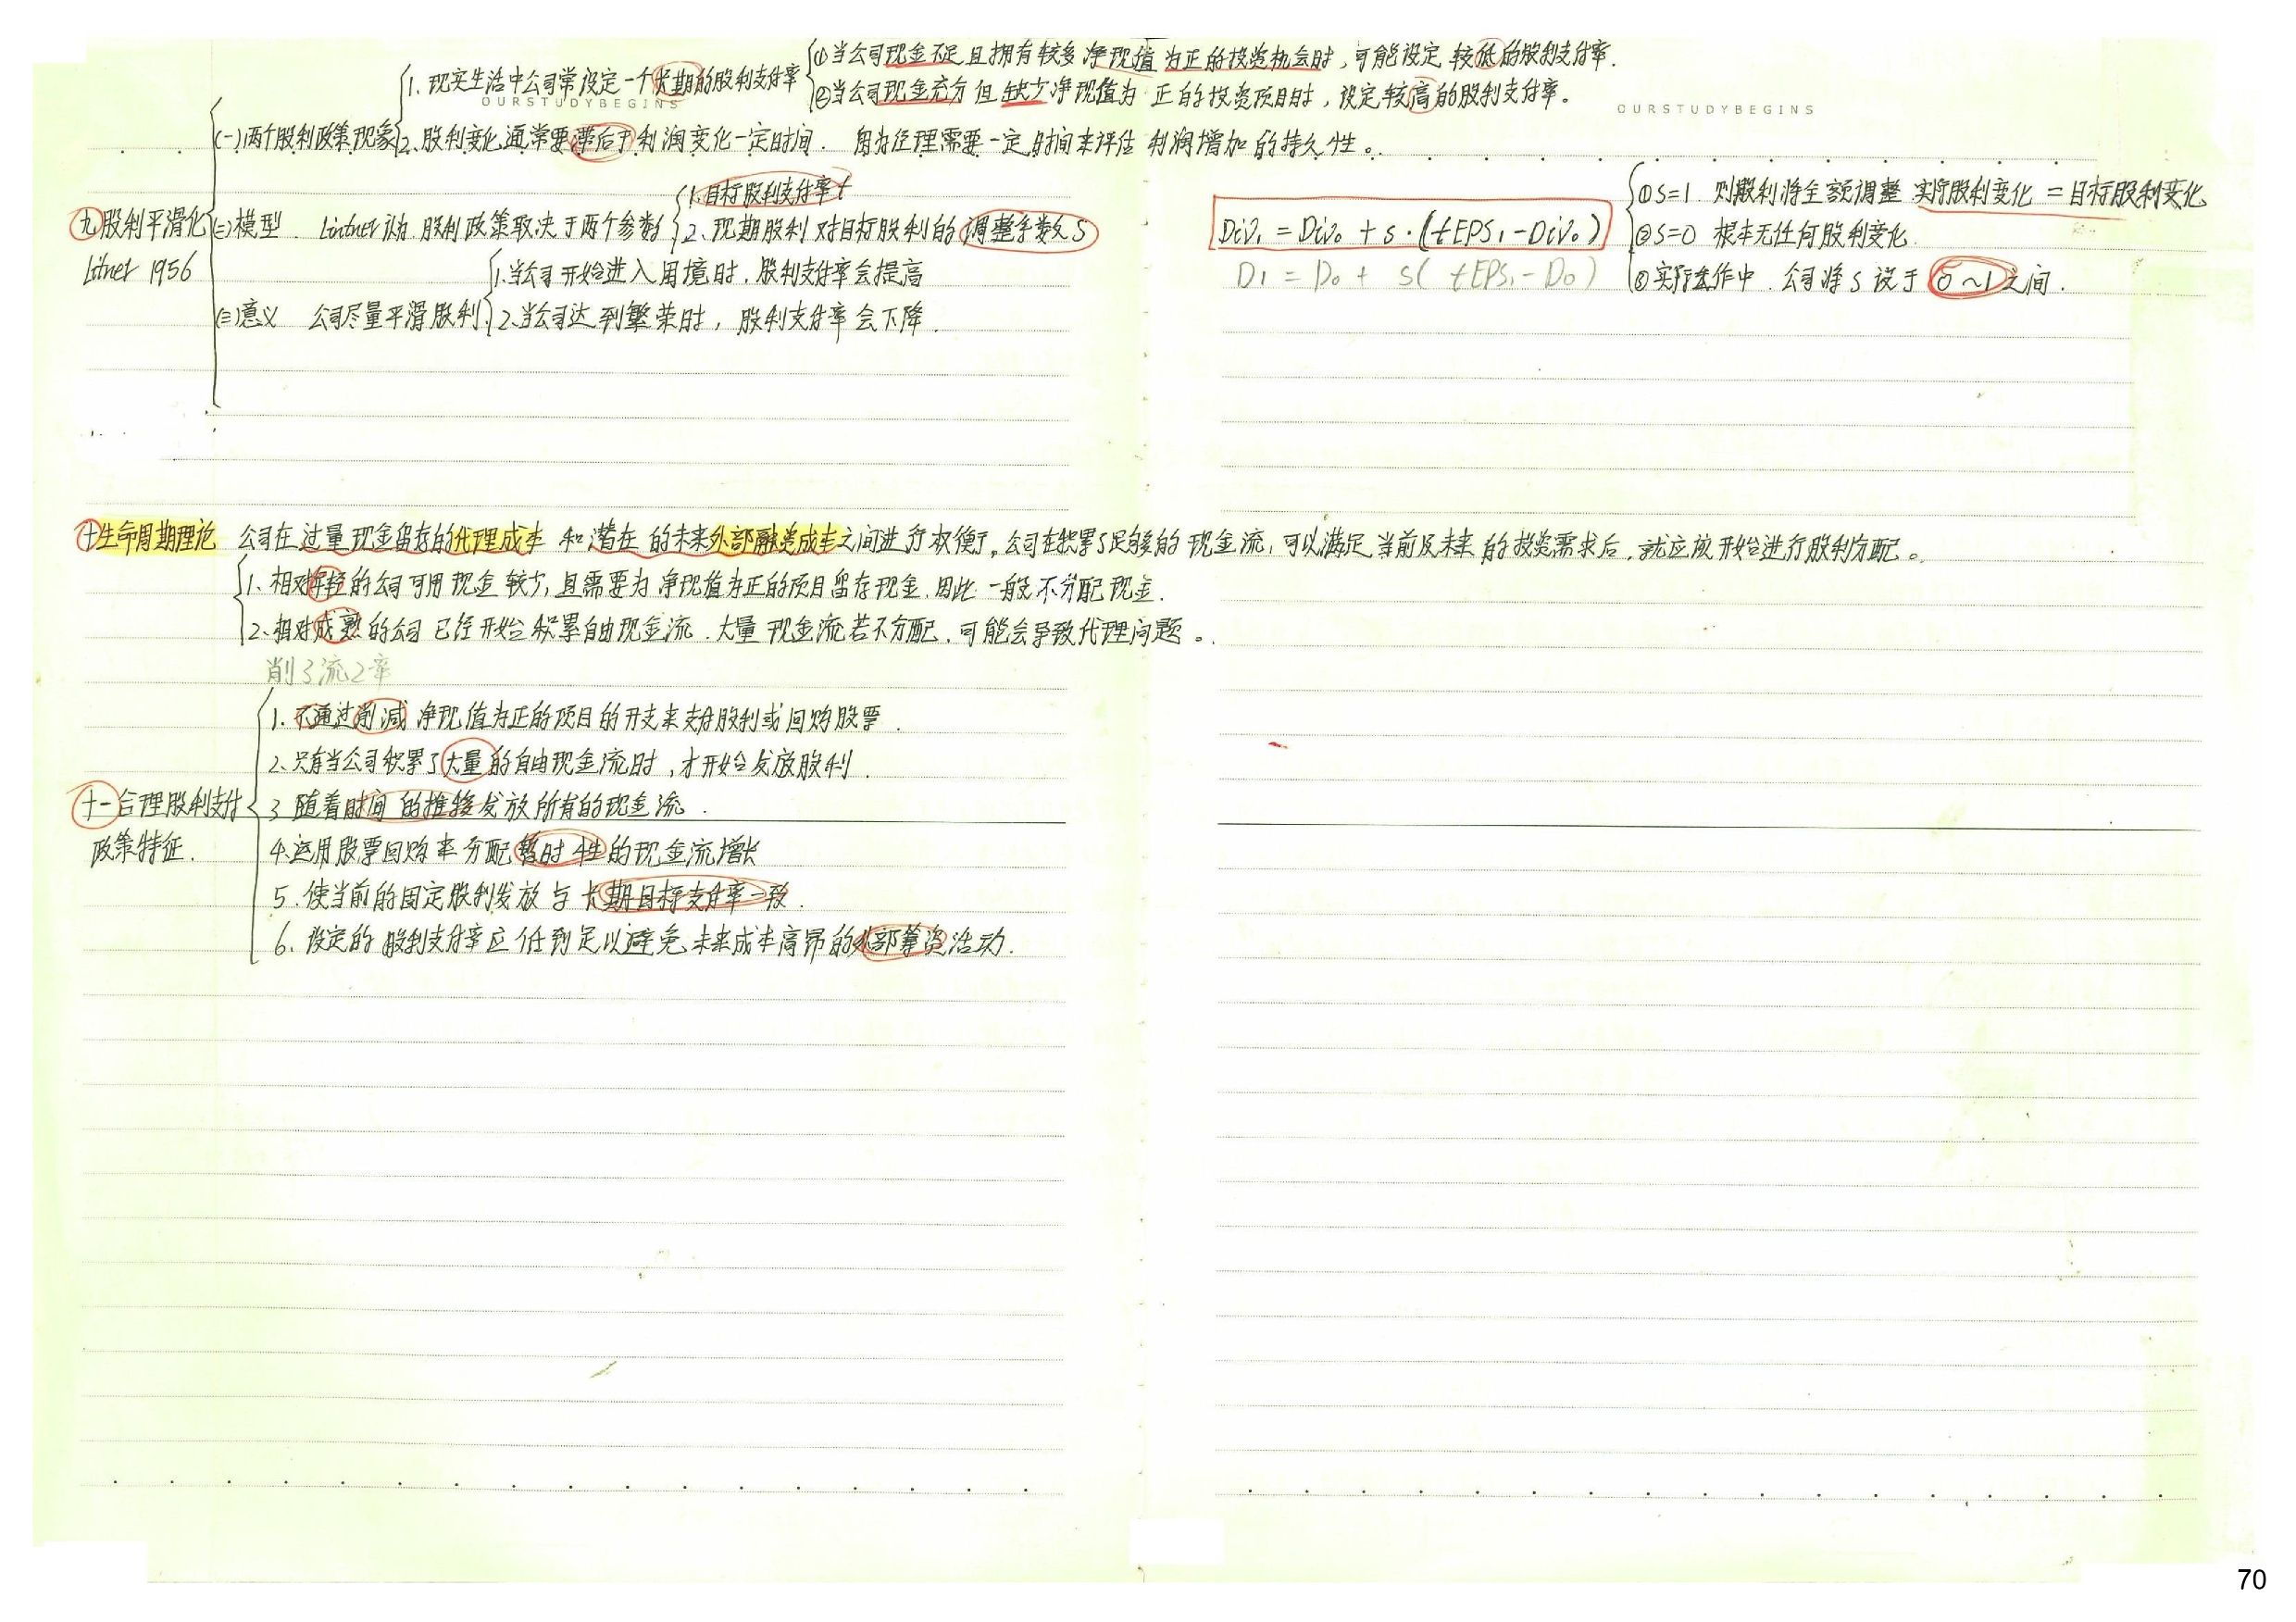 1. 现实生活中公司常设定一个长期的股利支付率
①当公司现金不足且拥有较多净现值为正的投资机会时，可能设定较低的股利支付率.
②当公司现金充分但缺少净现值为正的投资项目时，设定较高的股利支付率。
OURSTUDYBEGINS
OURSTUDYBEGINS
(一)两个股利政策现象
2、股利变化通常要滞后于利润变化一定时间. 因为经理需要一定时间来评估利润增加的持久性。
九 股利平滑化
Litner 1956
(二)模型. Lintner认为 股利政策取决于两个参数
1.目标股利支付率t
2、现期股利对目标股利的调整系数S
Div₁ = Div₀ + s·(tEPS₁ - Div₀)
D1 = D₀ + s( tEPS₁ - D₀)
①S=1. 则股利将全额调整 实际股利变化 = 目标股利变化
②S=0 根本无任何股利变化.
③实际操作中. 公司将S设于0~1之间.
(三)意义 公司尽量平滑股利
1.当公司开始进入困境时, 股利支付率会提高
2、当公司达到繁荣时, 股利支付率会下降.
十 生命周期理论 公司在过量现金留存的代理成本 和潜在的未来外部融资成本之间进行权衡。公司在积累了足够的现金流, 可以满足当前及未来的投资需求后, 就应该开始进行股利分配。
1、相对年轻的公司可用现金较少, 且需要为净现值为正的项目留存现金, 因此一般不分配现金.
2、相对成熟的公司已经开始积累自由现金流. 大量现金流若不分配, 可能会导致代理问题。
削3流2率
十一 合理股利支付
政策特征.
1. 不通过削减净现值为正的项目的开支来支付股利或回购股票.
2、只有当公司积累了大量的自由现金流时, 才开始发放股利.
3 随着时间的推移发放所有的现金流.
4、运用股票回购来分配暂时性的现金流增长
5. 使当前的固定股利发放与长期目标支付率一致.
6、设定的股利支付率应低到足以避免未来成本高昂的外部筹资活动.
70